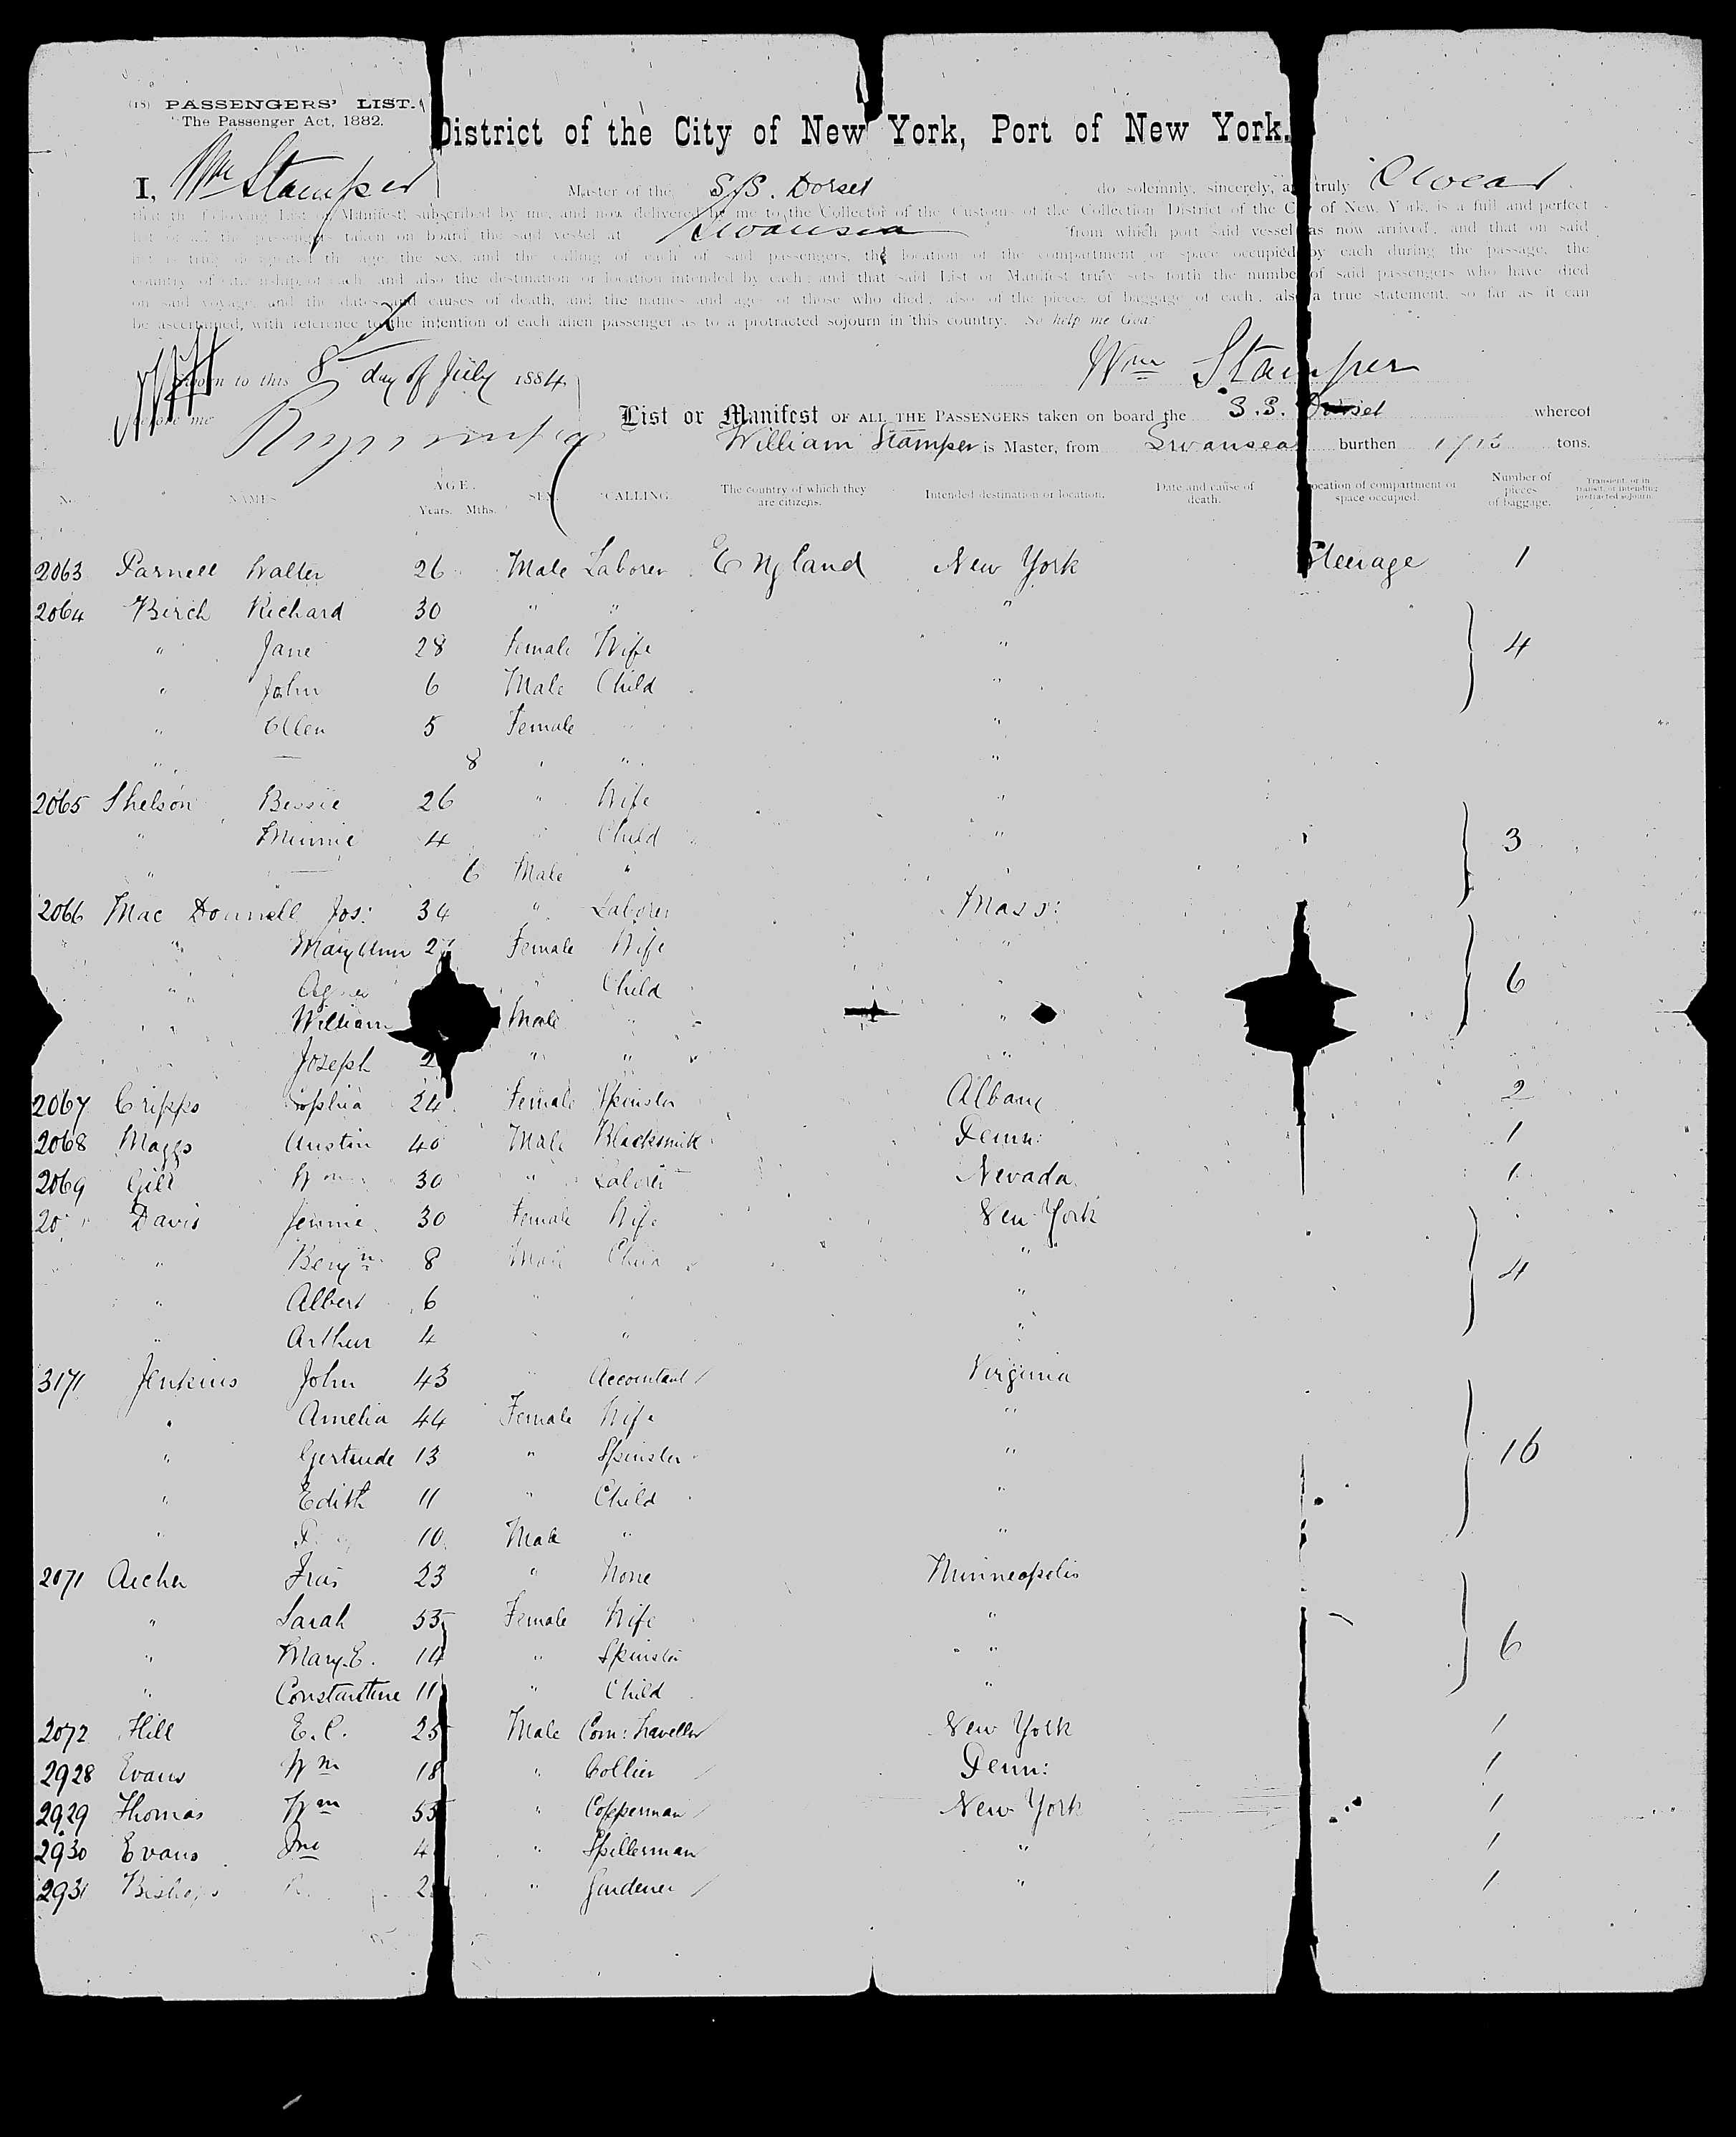 (18) PASSENGERS' LIST.
The Passenger Act, 1882.
District of the City of New York, Port of New York.
I, Wm Stamper Master of the S/S. Dorset do solemnly, sincerely, and truly Swear
that the following List or Manifest, subscribed by me, and now delivered by me to the Collector of the Customs of the Collection District of the City of New York, is a full and perfect
list of all the passengers taken on board the said vessel at Swansea from which port said vessel has now arrived, and that on said
list is truly designated the age, the sex, and the calling of each of said passengers, the location of the compartment or space occupied by each during the passage, the
country of citizenship of each, and also the destination or location intended by each; and that said List or Manifest truly sets forth the number of said passengers who have died
on said voyage, and the dates and causes of death, and the names and ages of those who died; also of the pieces of baggage of each; also a true statement, so far as it can
be ascertained, with reference to the intention of each alien passenger as to a protracted sojourn in this country. So help me God.
Sworn to this 8 day of July 1884. Wm Stamper
before me
List or Manifest OF ALL THE PASSENGERS taken on board the S.S. Dorset whereof
William Stamper is Master, from Swansea burthen 1713 tons.
No. NAMES AGE. Years. Mths. SEX. CALLING. The country of which they are citizens. Intended destination or location. Date and cause of death. Location of compartment or space occupied. Number of pieces of baggage. Transient, or in transit, or intending protracted sojourn.
2063 Parnell Walter 26 Male Laborer England New York Steerage 1
2064 Birch Richard 30 " " "
" Jane 28 Female Wife " 4
" John 6 Male Child "
" Ellen 5 Female "
" — 8 " " "
2065 Shelson Bessie 26 " Wife "
" Minnie 4 " Child " 3
" — 6 Male "
2066 Mac Donnell Jos: 34 " Laborer Mass:
" Mary Ann 2 Female Wife "
" Agnes " Child " 6
" William Male " "
Joseph 2 " " "
2067 Cripps Sophia 24 Female Spinster Albany 2
2068 Maggs Austin 40 Male Blacksmith Penn: 1
2069 Gill Wm 30 " Laborer Nevada 1
20 Davis Jennie 30 Female Wife New York
" Benjn 8 Male Child " 4
" Albert 6 " "
" Arthur 4 " " "
3171 Jenkins John 43 " Accountant Virginia
" Amelia 44 Female Wife "
" Gertrude 13 " Spinster " 16
" Edith 11 " Child "
" 10 Male " "
2071 Archer Fras 23 " None Minneapolis
" Sarah 53 Female Wife "
" Mary E. 14 " Spinster " 6
" Constantine 11 " Child "
2072 Hill E.C. 25 Male Com: Traveller New York 1
2928 Evans Wm 18 " Collier Penn: 1
2929 Thomas Wm 55 " Copperman New York 1
2930 Evans Jno 4 " Spillerman " 1
2931 Bishops 2 " Gardener " 1